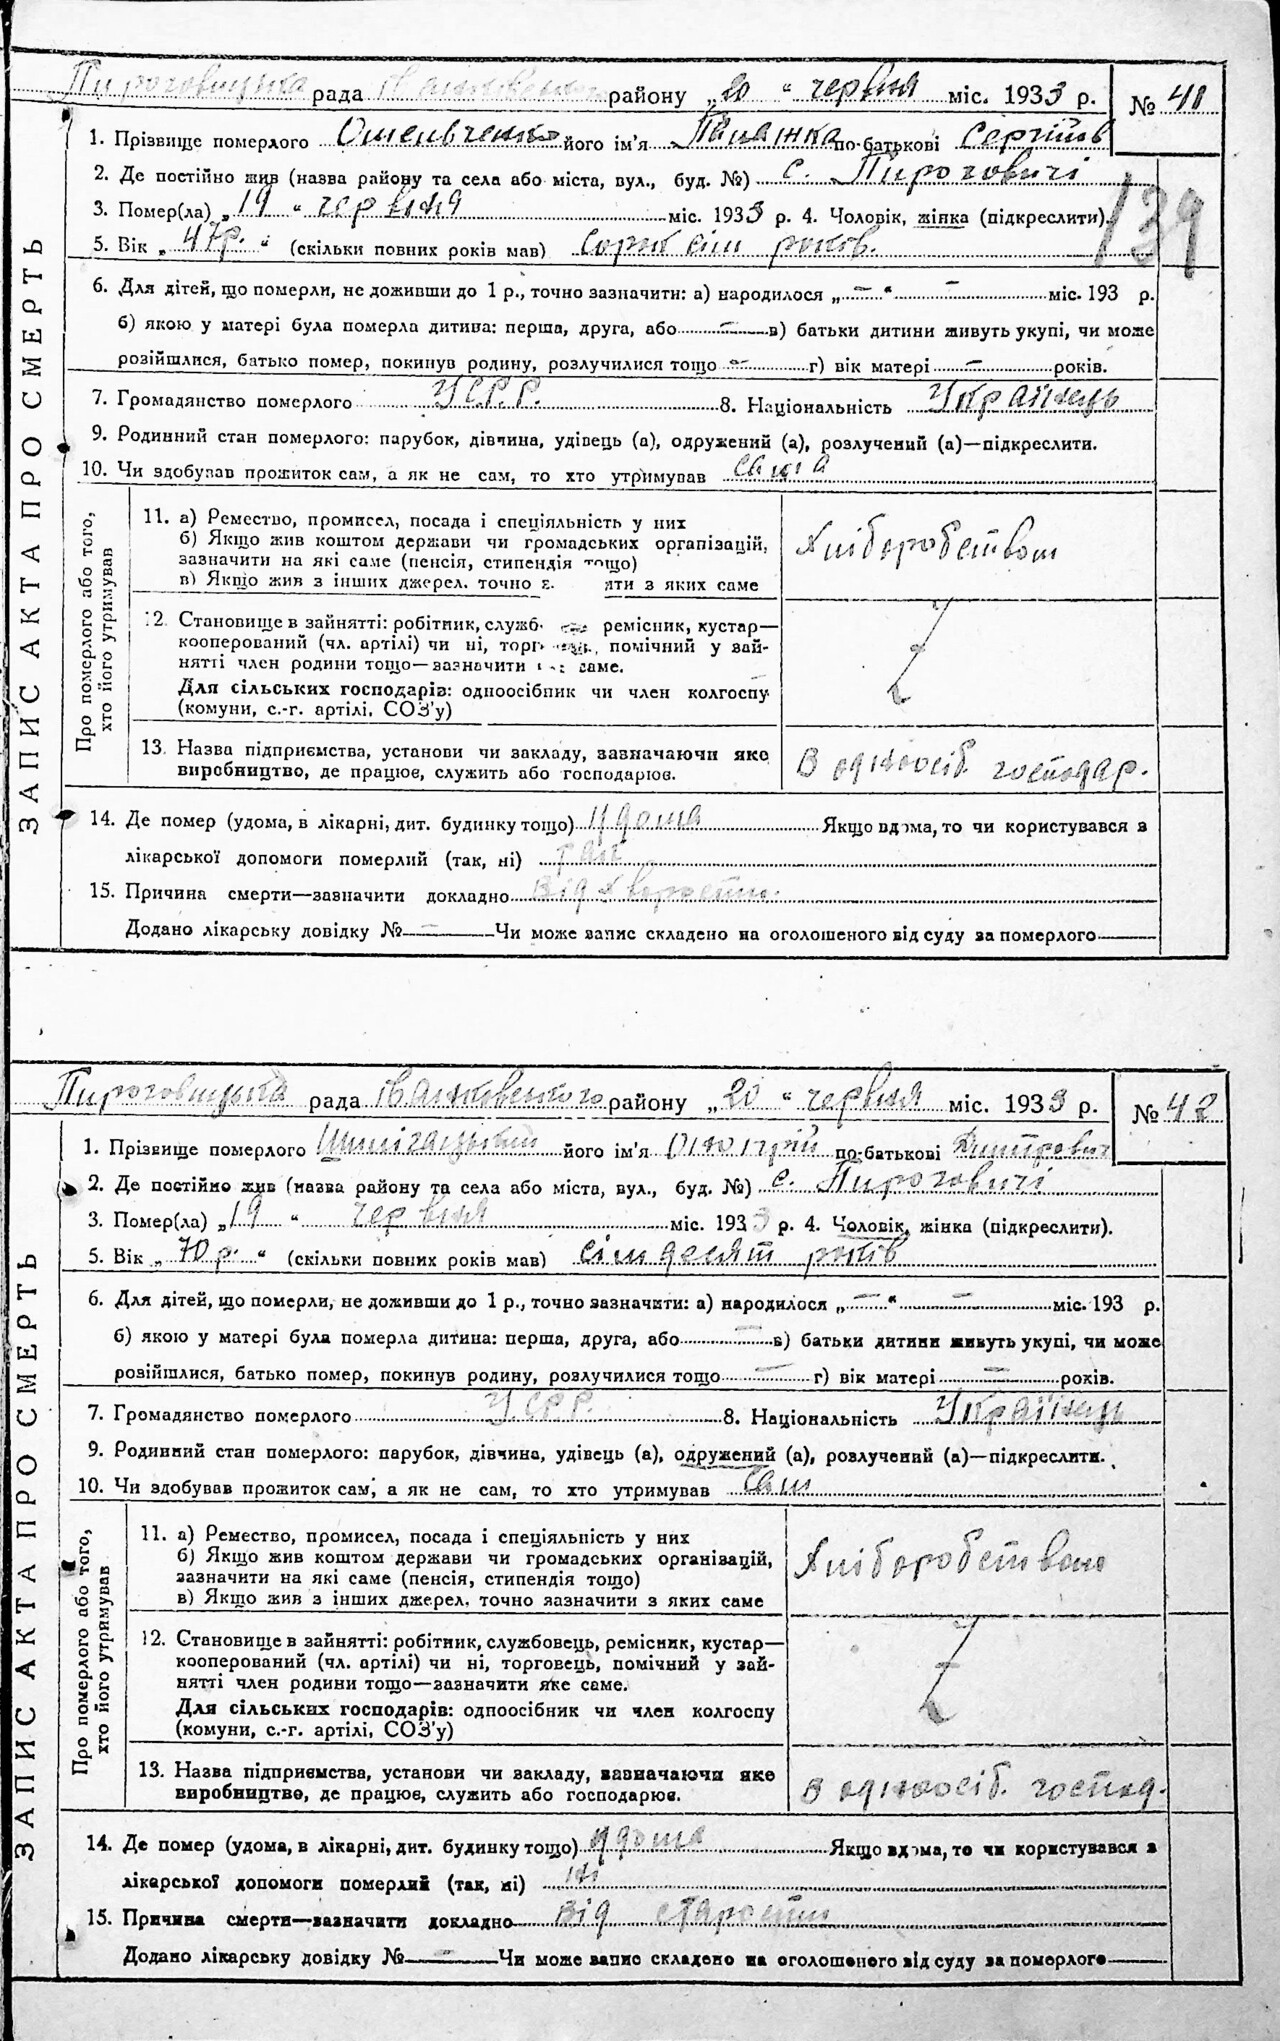 Пироговицька рада Іванковського району „20 “ червня міс. 1933 р. № 41
1. Прізвище померлого Омельченко його ім'я Палажка по-батькові Сергіїв
2. Де постійно жив (назва району та села або міста, вул., буд. №) с. Пироговичі
139
3. Помер(ла) „19 “ червня міс. 1933 р. 4. Чоловік, жінка (підкреслити).
5. Вік „ 47р. “ (скільки повних років мав) сорок сім років.
6. Для дітей, що померли, не доживши до 1 р., точно зазначити: а) народилося „ — “ — міс. 193 р.
б) якою у матері була померла дитина: перша, друга, або — в) батьки дитини живуть укупі, чи може
розійшлися, батько помер, покинув родину, розлучилися тощо — г) вік матері — років.
7. Громадянство померлого У.С.Р.Р. 8. Національність Українець
9. Родинний стан померлого: парубок, дівчина, удівець (а), одружений (а), розлучений (а)—підкреслити.
10. Чи здобував прожиток сам, а як не сам, то хто утримував сама
ЗАПИС АКТА ПРО СМЕРТЬ
Про померлого або того,
хто його утримував
11. а) Ремество, промисел, посада і спеціяльність у них
б) Якщо жив коштом держави чи громадських організацій,
зазначити на які саме (пенсія, стипендія тощо)
в) Якщо жив з інших джерел, точно з яти з яких саме
Хліборобством
12. Становище в зайнятті: робітник, служб ремісник, кустар—
кооперований (чл. артілі) чи ні, торг помічний у зай-
нятті член родини тощо—зазначити саме.
Для сільських господарів: одноосібник чи член колгоспу
(комуни, с.-г. артілі, СОЗ'у)
Z
13. Назва підприємства, установи чи закладу, зазначаючи яке
виробництво, де працює, служить або господарює.
В одноосіб. господар.
14. Де помер (удома, в лікарні, дит. будинку тощо) удома Якщо вдома, то чи користувався з
лікарської допомоги померлий (так, ні) так
15. Причина смерти—зазначити докладно від хворости.
Додано лікарську довідку № — Чи може запис складено на оголошеного від суду за померлого
Пироговицька рада Іванковського району „20 “ червня міс. 1933 р. № 42
1. Прізвище померлого його ім'я по-батькові Дмитрович
2. Де постійно жив (назва району та села або міста, вул., буд. №) с. Пироговичі
3. Помер(ла) „19 “ червня міс. 1933 р. 4. Чоловік, жінка (підкреслити).
5. Вік „ 70 р. “ (скільки повних років мав) сімдесят років
6. Для дітей, що померли, не доживши до 1 р., точно зазначити: а) народилося „ — “ — міс. 193 р.
б) якою у матері була померла дитина: перша, друга, або — в) батьки дитини живуть укупі, чи може
розійшлися, батько помер, покинув родину, розлучилися тощо — г) вік матері — років.
7. Громадянство померлого У.С.Р.Р. 8. Національність Українець
9. Родинний стан померлого: парубок, дівчина, удівець (а), одружений (а), розлучений (а)—підкреслити.
10. Чи здобував прожиток сам, а як не сам, то хто утримував сам
ЗАПИС АКТА ПРО СМЕРТЬ
Про померлого або того,
хто його утримував
11. а) Ремество, промисел, посада і спеціяльність у них
б) Якщо жив коштом держави чи громадських організацій,
зазначити на які саме (пенсія, стипендія тощо)
в) Якщо жив з інших джерел, точно зазначити з яких саме
Хліборобством
12. Становище в зайнятті: робітник, службовець, ремісник, кустар—
кооперований (чл. артілі) чи ні, торговець, помічний у зай-
нятті член родини тощо—зазначити яке саме.
Для сільських господарів: одноосібник чи член колгоспу
(комуни, с.-г. артілі, СОЗ'у)
Z
13. Назва підприємства, установи чи закладу, зазначаючи яке
виробництво, де працює, служить або господарює.
В одноосіб. господ.
14. Де помер (удома, в лікарні, дит. будинку тощо) удома Якщо вдома, то чи користувався з
лікарської допомоги померлий (так, ні) ні
15. Причина смерти—зазначити докладно від старости
Додано лікарську довідку № — Чи може запис складено на оголошеного від суду за померлого